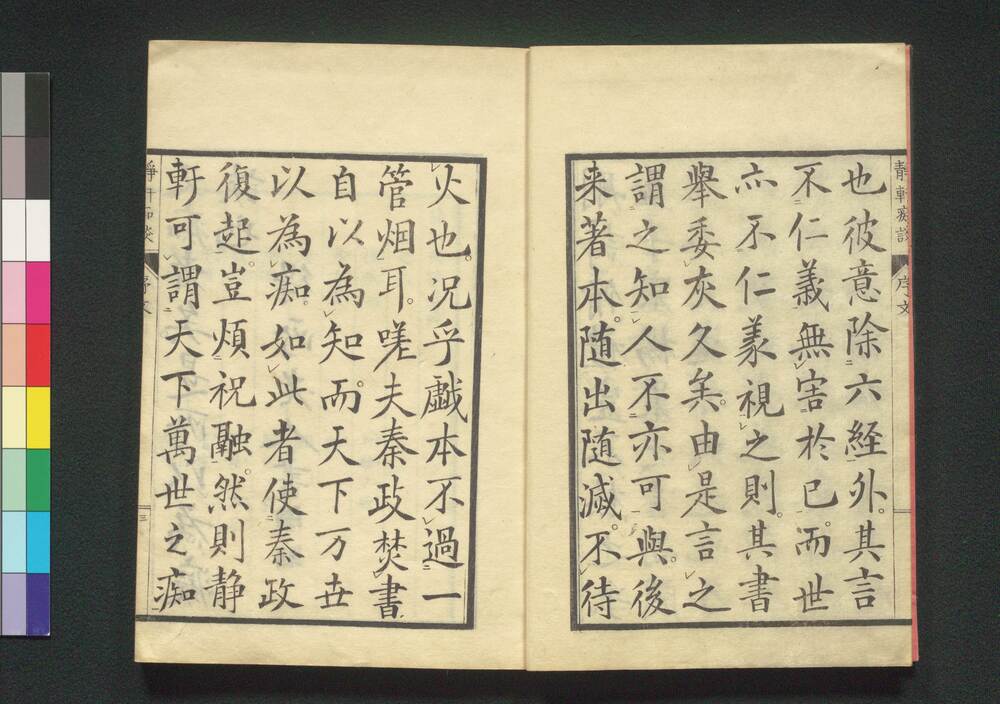 也彼意除六経外其言
不仁義無害於已而世
亦不仁義視之則其書
舉委灰久矣由是言之
謂之知人不亦可與後
来著本随出随滅不待
火也况乎戱本不過一
管烟耳嗟夫秦政焚書
自以為知而天下万世
以為痴如此者使秦政
復起豈煩祝融然則静
軒可謂天下萬世之痴
靜軒痴談
序文
三